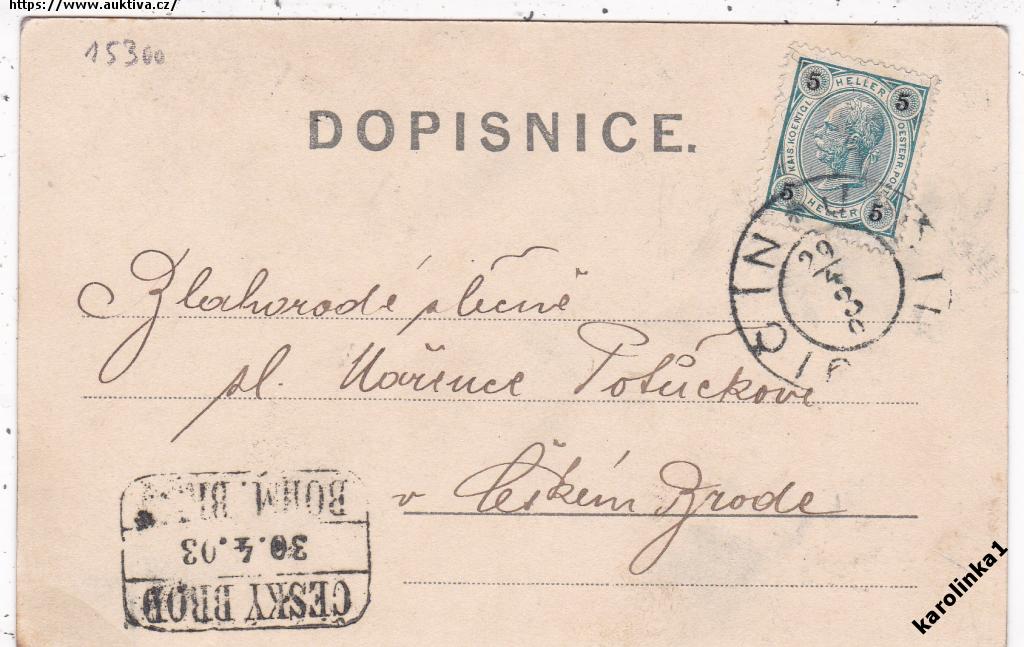 https://www.auktiva.cz/
15300
DOPISNICE.
5 HELLER 5
KAIS. KOENIGL. OESTERR. POST
5 HELLER 5
JIČÍN
29/4 3
Blahorodé slečně
sl. Mařence Potůčkové
v Českém Brodě
BÖHM. BROD
30.4.03
ČESKÝ BROD
karolinka1